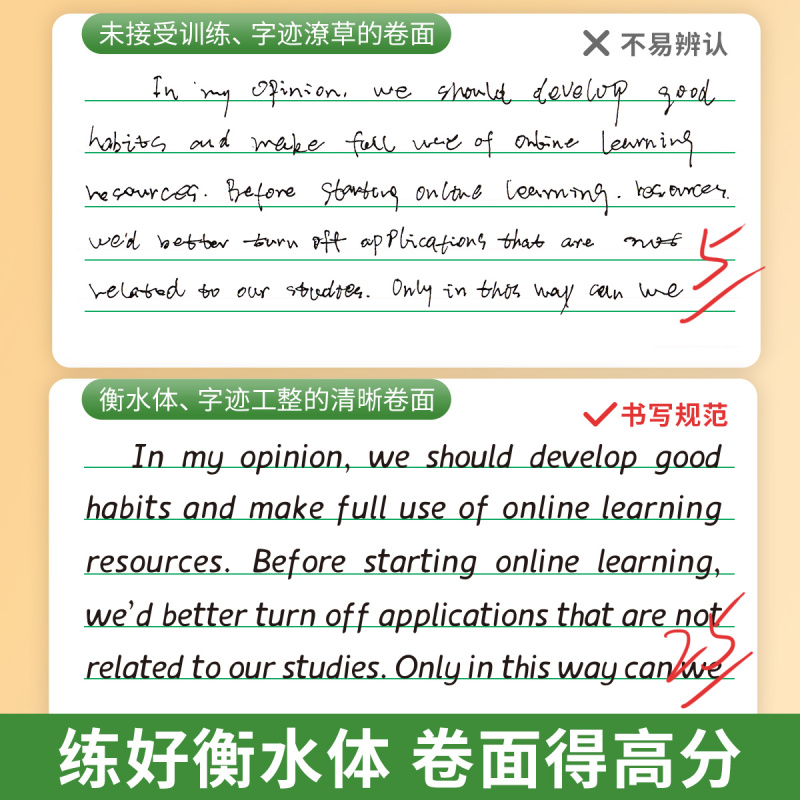 未接受训练、字迹潦草的卷面
不易辨认
In my opinion, we should develop good
habits and make full use of online learning
resources. Before starting online learning. resources.
we'd better turn off applications that are not
related to our studies. Only in this way can we
5
衡水体、字迹工整的清晰卷面
书写规范
In my opinion, we should develop good
habits and make full use of online learning
resources. Before starting online learning,
we'd better turn off applications that are not
related to our studies. Only in this way can we
25
练好衡水体 卷面得高分